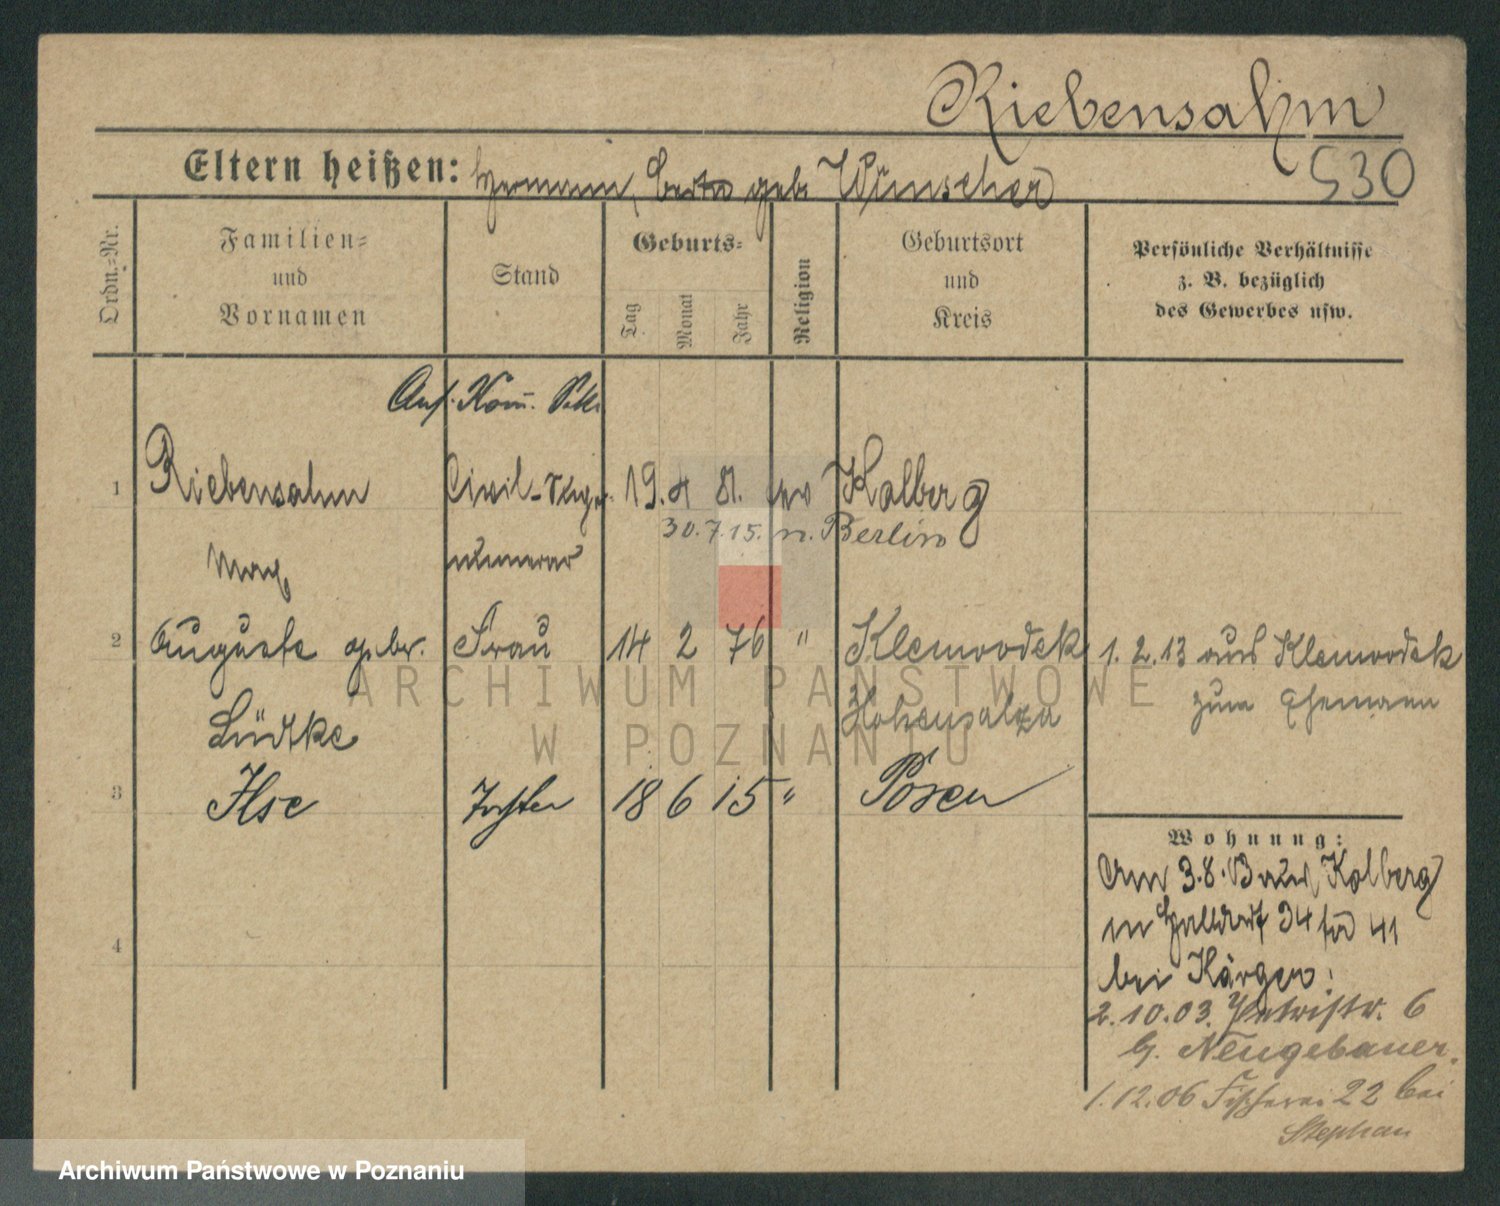 Riebensahm
530
Eltern heißen: Hermann, Berta geb. Wünscher
Ordn.=Nr.
Familien=
und
Vornamen
Stand
Geburts=
Tag
Monat
Jahr
Religion
Geburtsort
und
Kreis
Persönliche Verhältnisse
z. B. bezüglich
des Gewerbes usw.
1 Riebensahm Civil- 19. 4 81. ev Kolberg
30.7.15. n. Berlin
Max numerar
2 Auguste geb. Frau 14 2 76 " Klemoodek 1. 2. 13 aus Klemoodek
Lüdtke Hohensalza zum Ehemann
3 Ilse Tochter 18 6 15 " Posen
Wohnung:
Am 3.8. aus Kolberg
in 34 41
bei Kärger.
2.10.03. Petristr. 6
b. Neugebauer.
4
1.12.06 Fischerei 22 bei
Stephan
ARCHIWUM PAŃSTWOWE
W POZNANIU
Archiwum Państwowe w Poznaniu